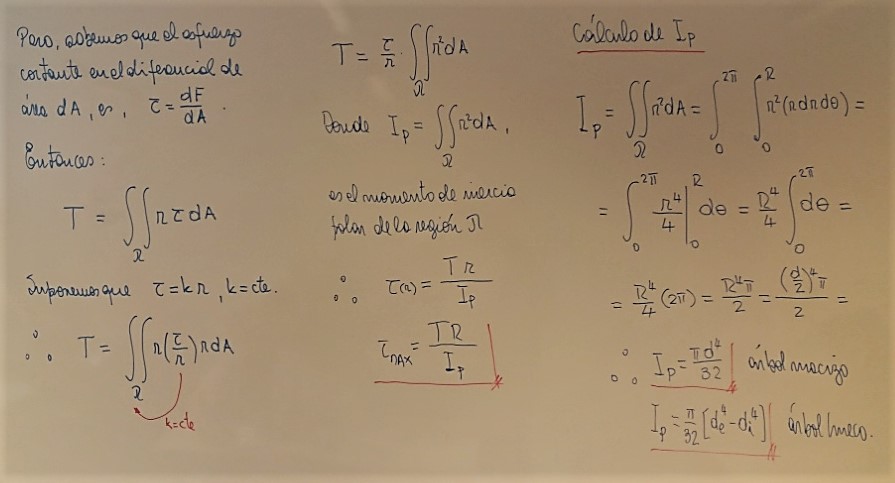 Pero, sabemos que el esfuerzo
cortante en el diferencial de
área dA, es, τ = dF/dA.
Entonces:
T = ∬_R r τ dA
Suponemos que τ = k r, k = cte.
∴ T = ∬_R r(τ/r) r dA
k=cte
T = τ/r · ∬_R r² dA
Donde I_p = ∬_R r² dA,
es el momento de inercia
polar de la región R
∴ τ(r) = T r / I_p
τ_MAX = T R / I_p
Cálculo de I_p
I_p = ∬_R r² dA = ∫_0^2π ∫_0^R r² (r dr dθ) =
= ∫_0^2π r⁴/4 |_0^R dθ = R⁴/4 ∫_0^2π dθ =
= R⁴/4 (2π) = R⁴π/2 = (d/2)⁴ π / 2 =
∴ I_p = π d⁴/32 árbol macizo
I_p = π/32 [d_e⁴ - d_i⁴] árbol hueco.